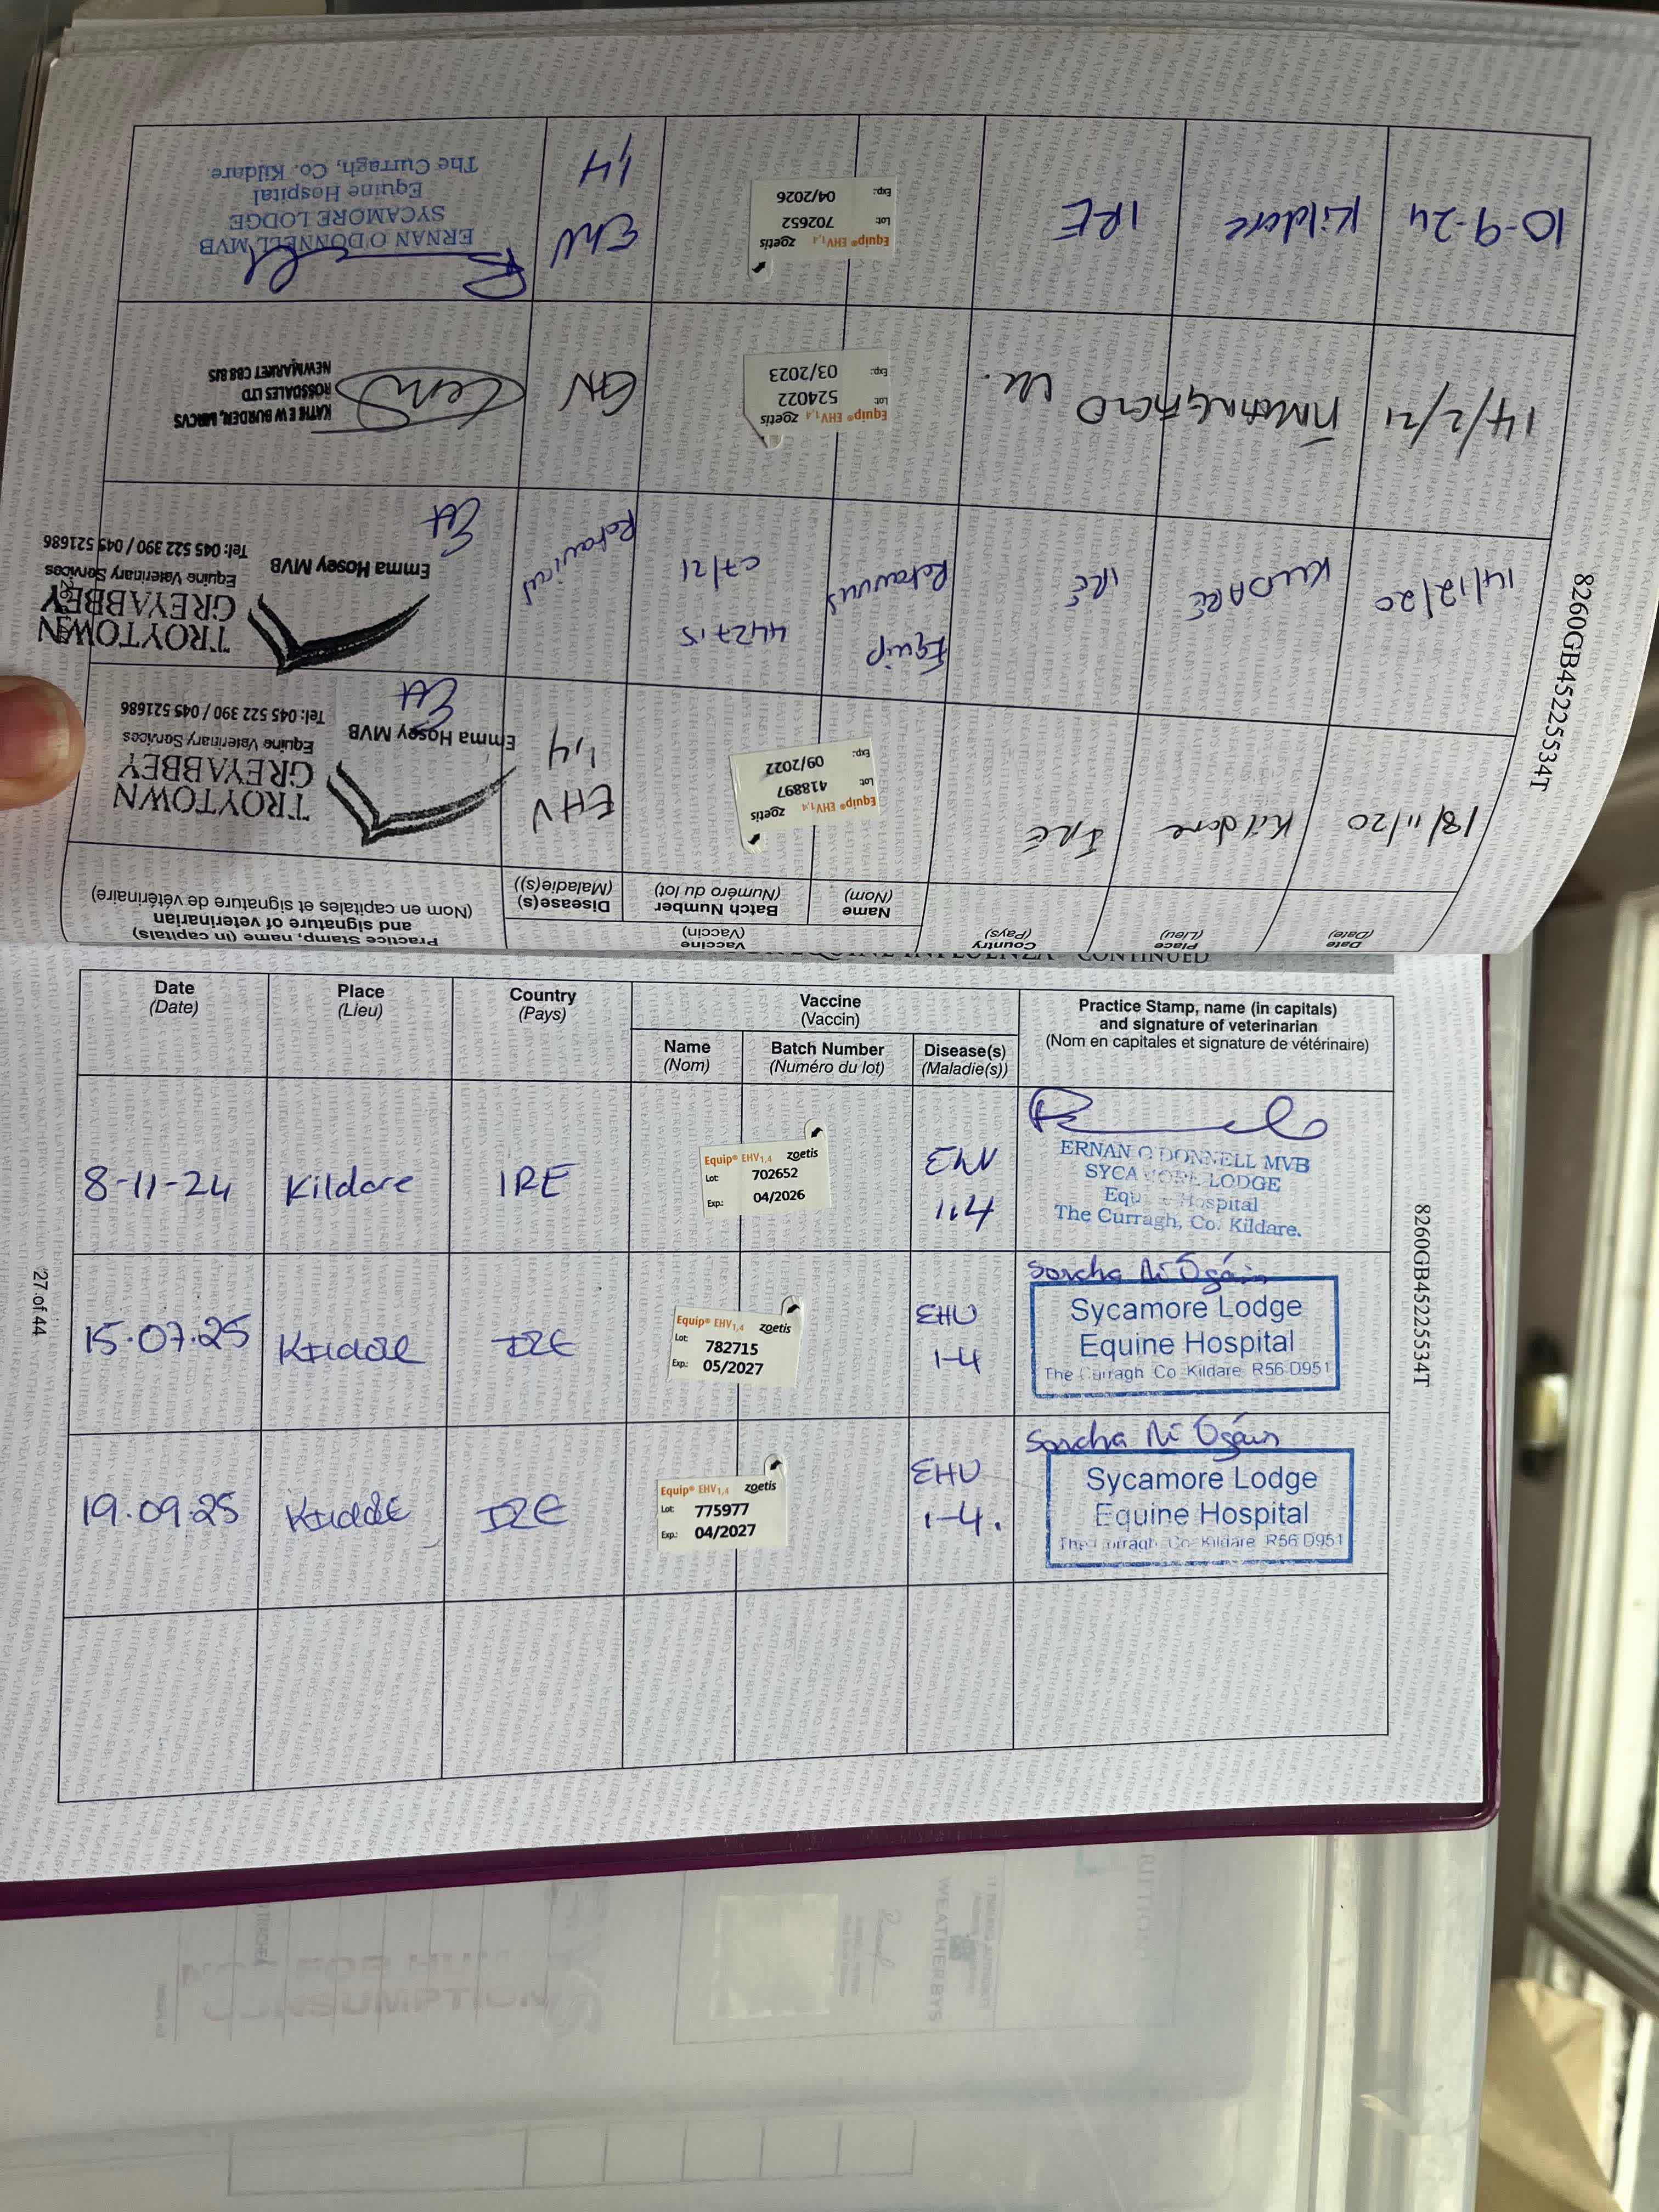 Date
(Date)
Place
(Lieu)
Country
(Pays)
Vaccine
(Vaccin)
Name
(Nom)
Batch Number
(Numéro du lot)
Disease(s)
(Maladie(s))
Practice Stamp, name (in capitals)
and signature of veterinarian
(Nom en capitales et signature de vétérinaire)
18/11/20 Kildare IRE
Equip® EHV1,4 zoetis
Lot: 418897
Exp.: 09/2022
EHV
1,4
TROYTOWN
GREYABBEY
Equine Veterinary Services
Emma Hosey MVB
Tel: 045 522 390 / 045 521686
14/12/20 KILDARE IRE
Equip
Rotavirus
442715
07/21
Rotavirus
TROYTOWN
GREYABBEY
Equine Veterinary Services
Emma Hosey MVB
Tel: 045 522 390 / 045 521686
14/2/21
Equip® EHV1,4 zoetis
Lot: 524022
Exp.: 03/2023
KATIE E W BURDER, MRCVS
ROSSDALES LTD
NEWMARKET CB8 8JS
10-9-24 Kildare IRE
Equip® EHV1,4 zoetis
Lot: 702652
Exp.: 04/2026
EHV
1,4
ERNAN O'DONNELL MVB
SYCAMORE LODGE
Equine Hospital
The Curragh, Co. Kildare.
8260GB45225534T
EQUINE INFLUENZA CONTINUED
Date
(Date)
Place
(Lieu)
Country
(Pays)
Vaccine
(Vaccin)
Name
(Nom)
Batch Number
(Numéro du lot)
Disease(s)
(Maladie(s))
Practice Stamp, name (in capitals)
and signature of veterinarian
(Nom en capitales et signature de vétérinaire)
8-11-24 Kildare IRE
Equip® EHV1,4 zoetis
Lot: 702652
Exp.: 04/2026
EHV
1,4
ERNAN O'DONNELL MVB
SYCAMORE LODGE
Equine Hospital
The Curragh, Co. Kildare.
15.07.25 Kildare IRE
Equip® EHV1,4 zoetis
Lot: 782715
Exp.: 05/2027
EHV
1-4
Sorcha Ní Ógáin
Sycamore Lodge
Equine Hospital
The Curragh Co Kildare R56 D951
19.09.25 Kildare IRE
Equip® EHV1,4 zoetis
Lot: 775977
Exp.: 04/2027
EHV
1-4.
Sorcha Ní Ógáin
Sycamore Lodge
Equine Hospital
The Curragh Co Kildare R56 D951
8260GB45225534T
27 of 44
WEATHERBYS
CONSUMPTION